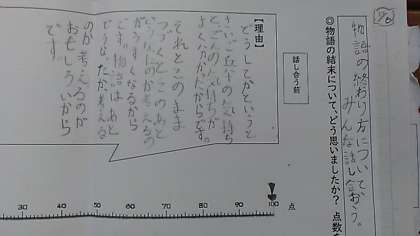 物語の終わり方について
みんなで話し合おう。
◎物語の結末について、どう思いましたか？ 点数を
話し合う前
【理由】
どうしてかというと
さいごに兵十の気持ち
とごんの気持ちが
よくわかったからです。
それとこのまま
つづくとこのあと
どうなるのか考えるの
がうすくなるから
です。物語はあと
どうなったか考える
のが考えるのが
おもしろいから
です。
30 40 50 60 70 80 90 100 点